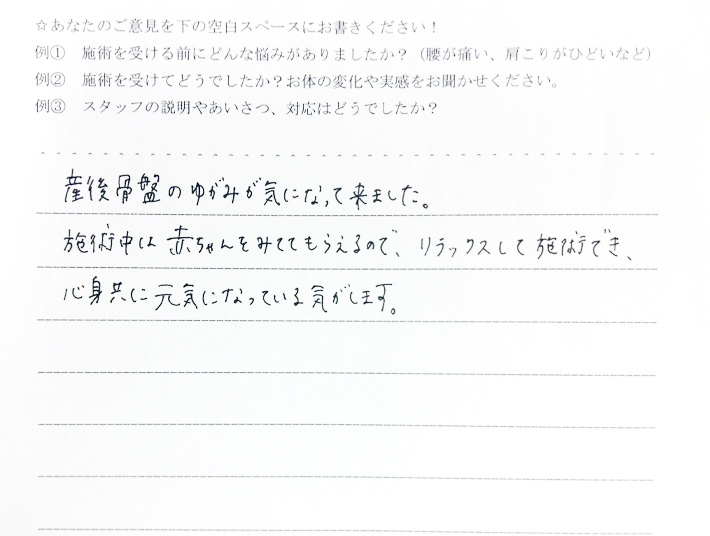 ☆あなたのご意見を下の空白スペースにお書きください！
例① 施術を受ける前にどんな悩みがありましたか？（腰が痛い、肩こりがひどいなど）
例② 施術を受けてどうでしたか？お体の変化や実感をお聞かせください。
例③ スタッフの説明やあいさつ、対応はどうでしたか？
産後骨盤のゆがみが気になって来ました。
施術中は赤ちゃんをみててもらえるので、リラックスして施術でき、
心身共に元気になっている気がします。